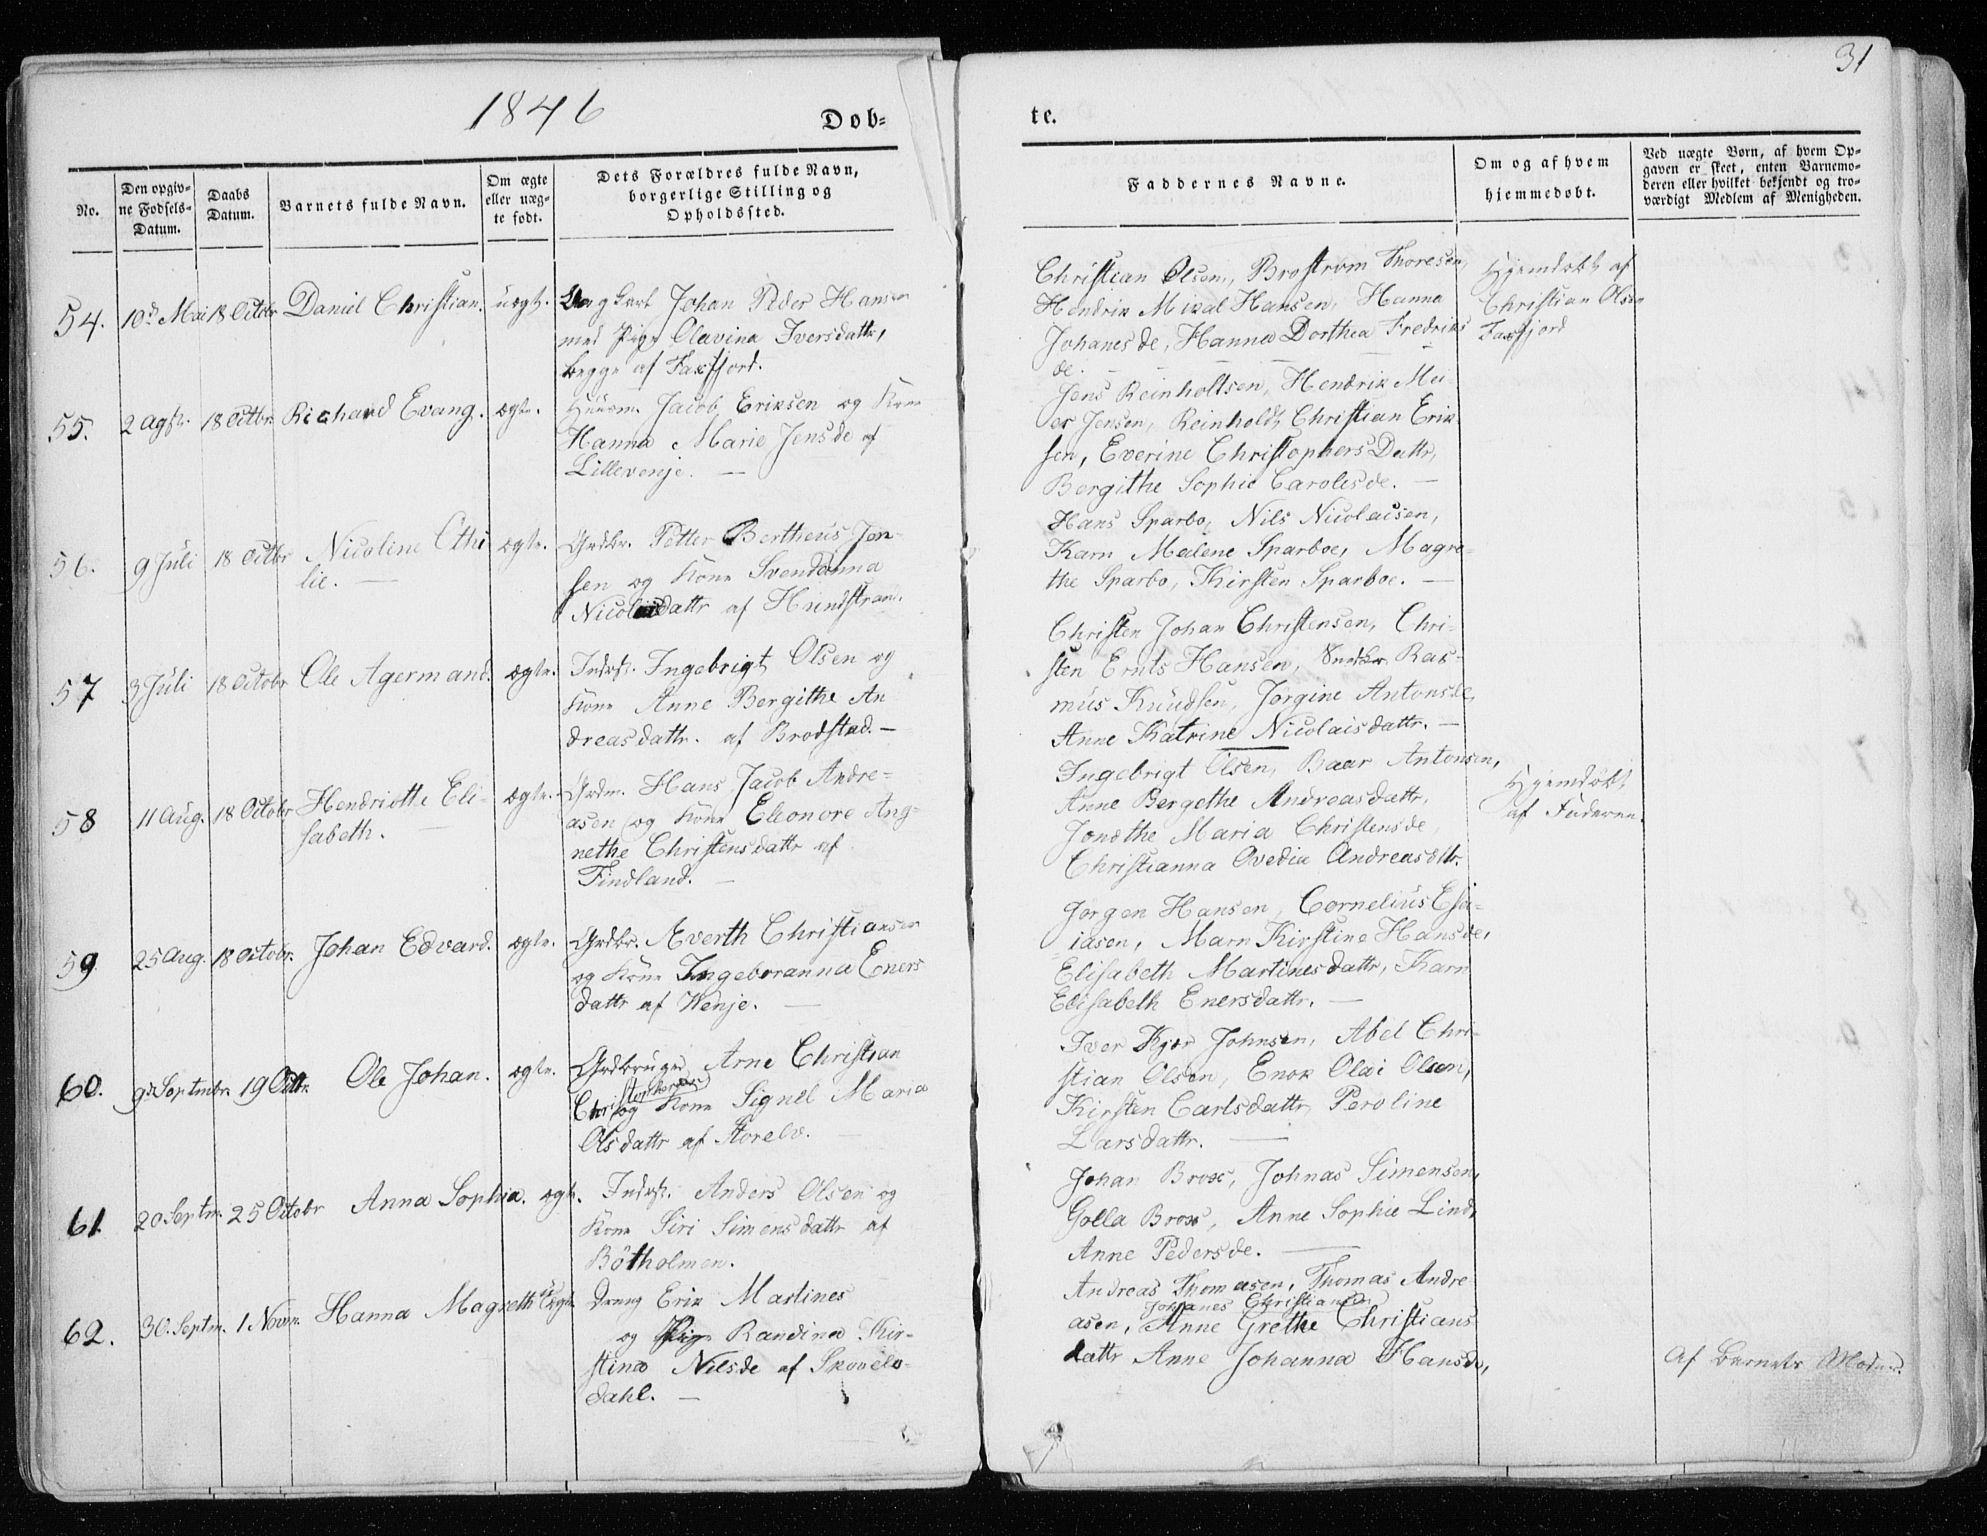 1846
Døb-
te.
31
No.
Den opgiv-
ne Fødsels-
Datum.
Daabs
Datum.
Barnets fulde Navn.
Om ægte
eller uæg-
te født.
Dets Forældres fulde Navn,
borgerlige Stilling og
Opholdssted.
Faddernes Navne.
Om og af hvem
hjemmedøbt.
Ved uægte Børn, af hvem Op-
gaven er skeet, enten Barnemo-
deren eller hvilket bekjendt og tro-
værdigt Medlem af Menigheden.
54. 10d Mai 18 Octobr Daniel Christian. uægt. Johan Peder Hansen
med Pige Olavina Iversdattr,
begge af Faxfjord.
Christian Olsen, Brostrøm Thoresen,
Hendrik Mikal Hansen, Hanna
Johanesde, Hanna Dorthea Fredriks
de.
Hjemdøbt af
Christian Olsen
Faxfjord
55. 2 Agst. 18 Octbr. Richard Evang. ægte. Huusm. Jacob Eriksen og Kone
Hanna Marie Jensde af
Lillevenje. —
Jens Reinholtsen, Hendrik Mei-
er Jensen, Reinholdt Christian Erik-
sen, Everine Christophers Dattr,
Bergithe Sophie Carolesde. —
56. 9 Juli 18 Octbr Nicoline Othi
lie. — ægte. Grdbr. Petter Bertheus Jen-
sen og Kone Svendanna
Nicolaidattr af Hundstrand.
Hans Sparbo, Nils Nicolaisen,
Karn Malene Sparboe, Magre-
the Sparbo, Kirsten Sparboe. —
57 3 Juli 18 Octobr Ole Agermand. ægte. Inderst. Ingebrigt Olsen og
Kone Anne Bergithe An
dreasdattr. af Brodstad. —
Christen Johan Christensen, Chri-
sten Ernts Hansen, Ras-
mus Knudsen, Jørgine Antonsde,
Anne Katrine Nicolaisdattr. —
58 11 Aug. 18 Octobr Hendriette Eli-
sabeth. — ægte. Grdm. Hans Jacob Andre-
asen og Kone Eleonore Ang-
nethe Christensdattr af
Findland. —
Ingebrigt Olsen, Baar Antonsen,
Anne Bergethe Andreasdattr,
Jonethe Maria Christensde,
Christianna Ovedia Andreasdttr.
Hjemdøbt
af Faderen.
59 25 Aug. 18 Octobr. Johan Edvard. ægte. Grdbr. Everth Christiansen
og Kone Ingeboranna Eners
dattr af Wenje. —
Jørgen Hansen, Cornelius Esa-
iasen, Marn Kirstine Hansde,
Elisabeth Martinesdattr, Karn
Elisabeth Enersdattr. —
60. 9d Septmbr. 19 Octbr. Ole Johan. ægte. Grdbruger Arne Christian
Christophersen og Kone Signel Maria
Olsdattr af Storelv. —
Iver Kjær Johnsen, Abel Chri-
stian Olsen, Enok Olai Olsen,
Kirsten Carlsdattr, Peroline
Larsdattr. —
61. 20 Septm. 25 Octobr Anna Sophia. ægte. Inderst. Anders Olsen og
Kone Siri Simensdattr af
Bötholmen.
Johan Brox, Johnas Simensen,
Golla Brox, Anne Sophie Lind,
Anne Pedersde. —
62. 30. Septm. 1 Novm. Hanna Magreth uægte Dreng Erik Martines
og Pige Randina Kir-
stina Nilsde af Skovelv-
dahl. —
Andreas Thomasen, Thomas Andre
asen, Johanes Christiansen Anne Grethe Christians
dattr Anne Johanna Hansde,
Af Barnets Moder.